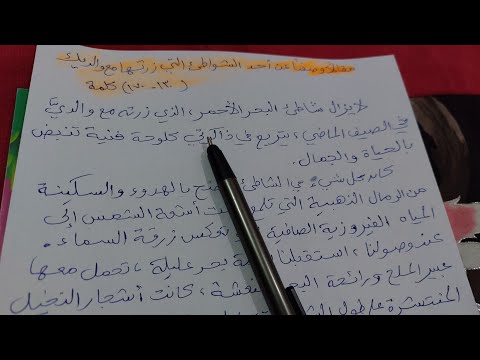 مقالا وصفيا عن أحد الشواطئ التي زرتها مع والديك
(١٣٠-١٢٠) كلمة
لا يزال شاطئ البحر الأحمر، الذي زرته مع والديَّ
في الصيف الماضي، يتربع في ذاكرتي كلوحة فنية تنبض
بالحياة والجمال.
كان كل شيء في الشاطئ بالهدوء والسكينة
من الرمال الذهبية التي أشعة الشمس إلى
المياه الفيروزية الصافية تعكس زرقة السماء.
عند وصولنا، استقبلنا بحر عليلة، تحمل معها
عبير الملح ورائحة البحر، كانت أشجار النخيل
المنتشرة على طول